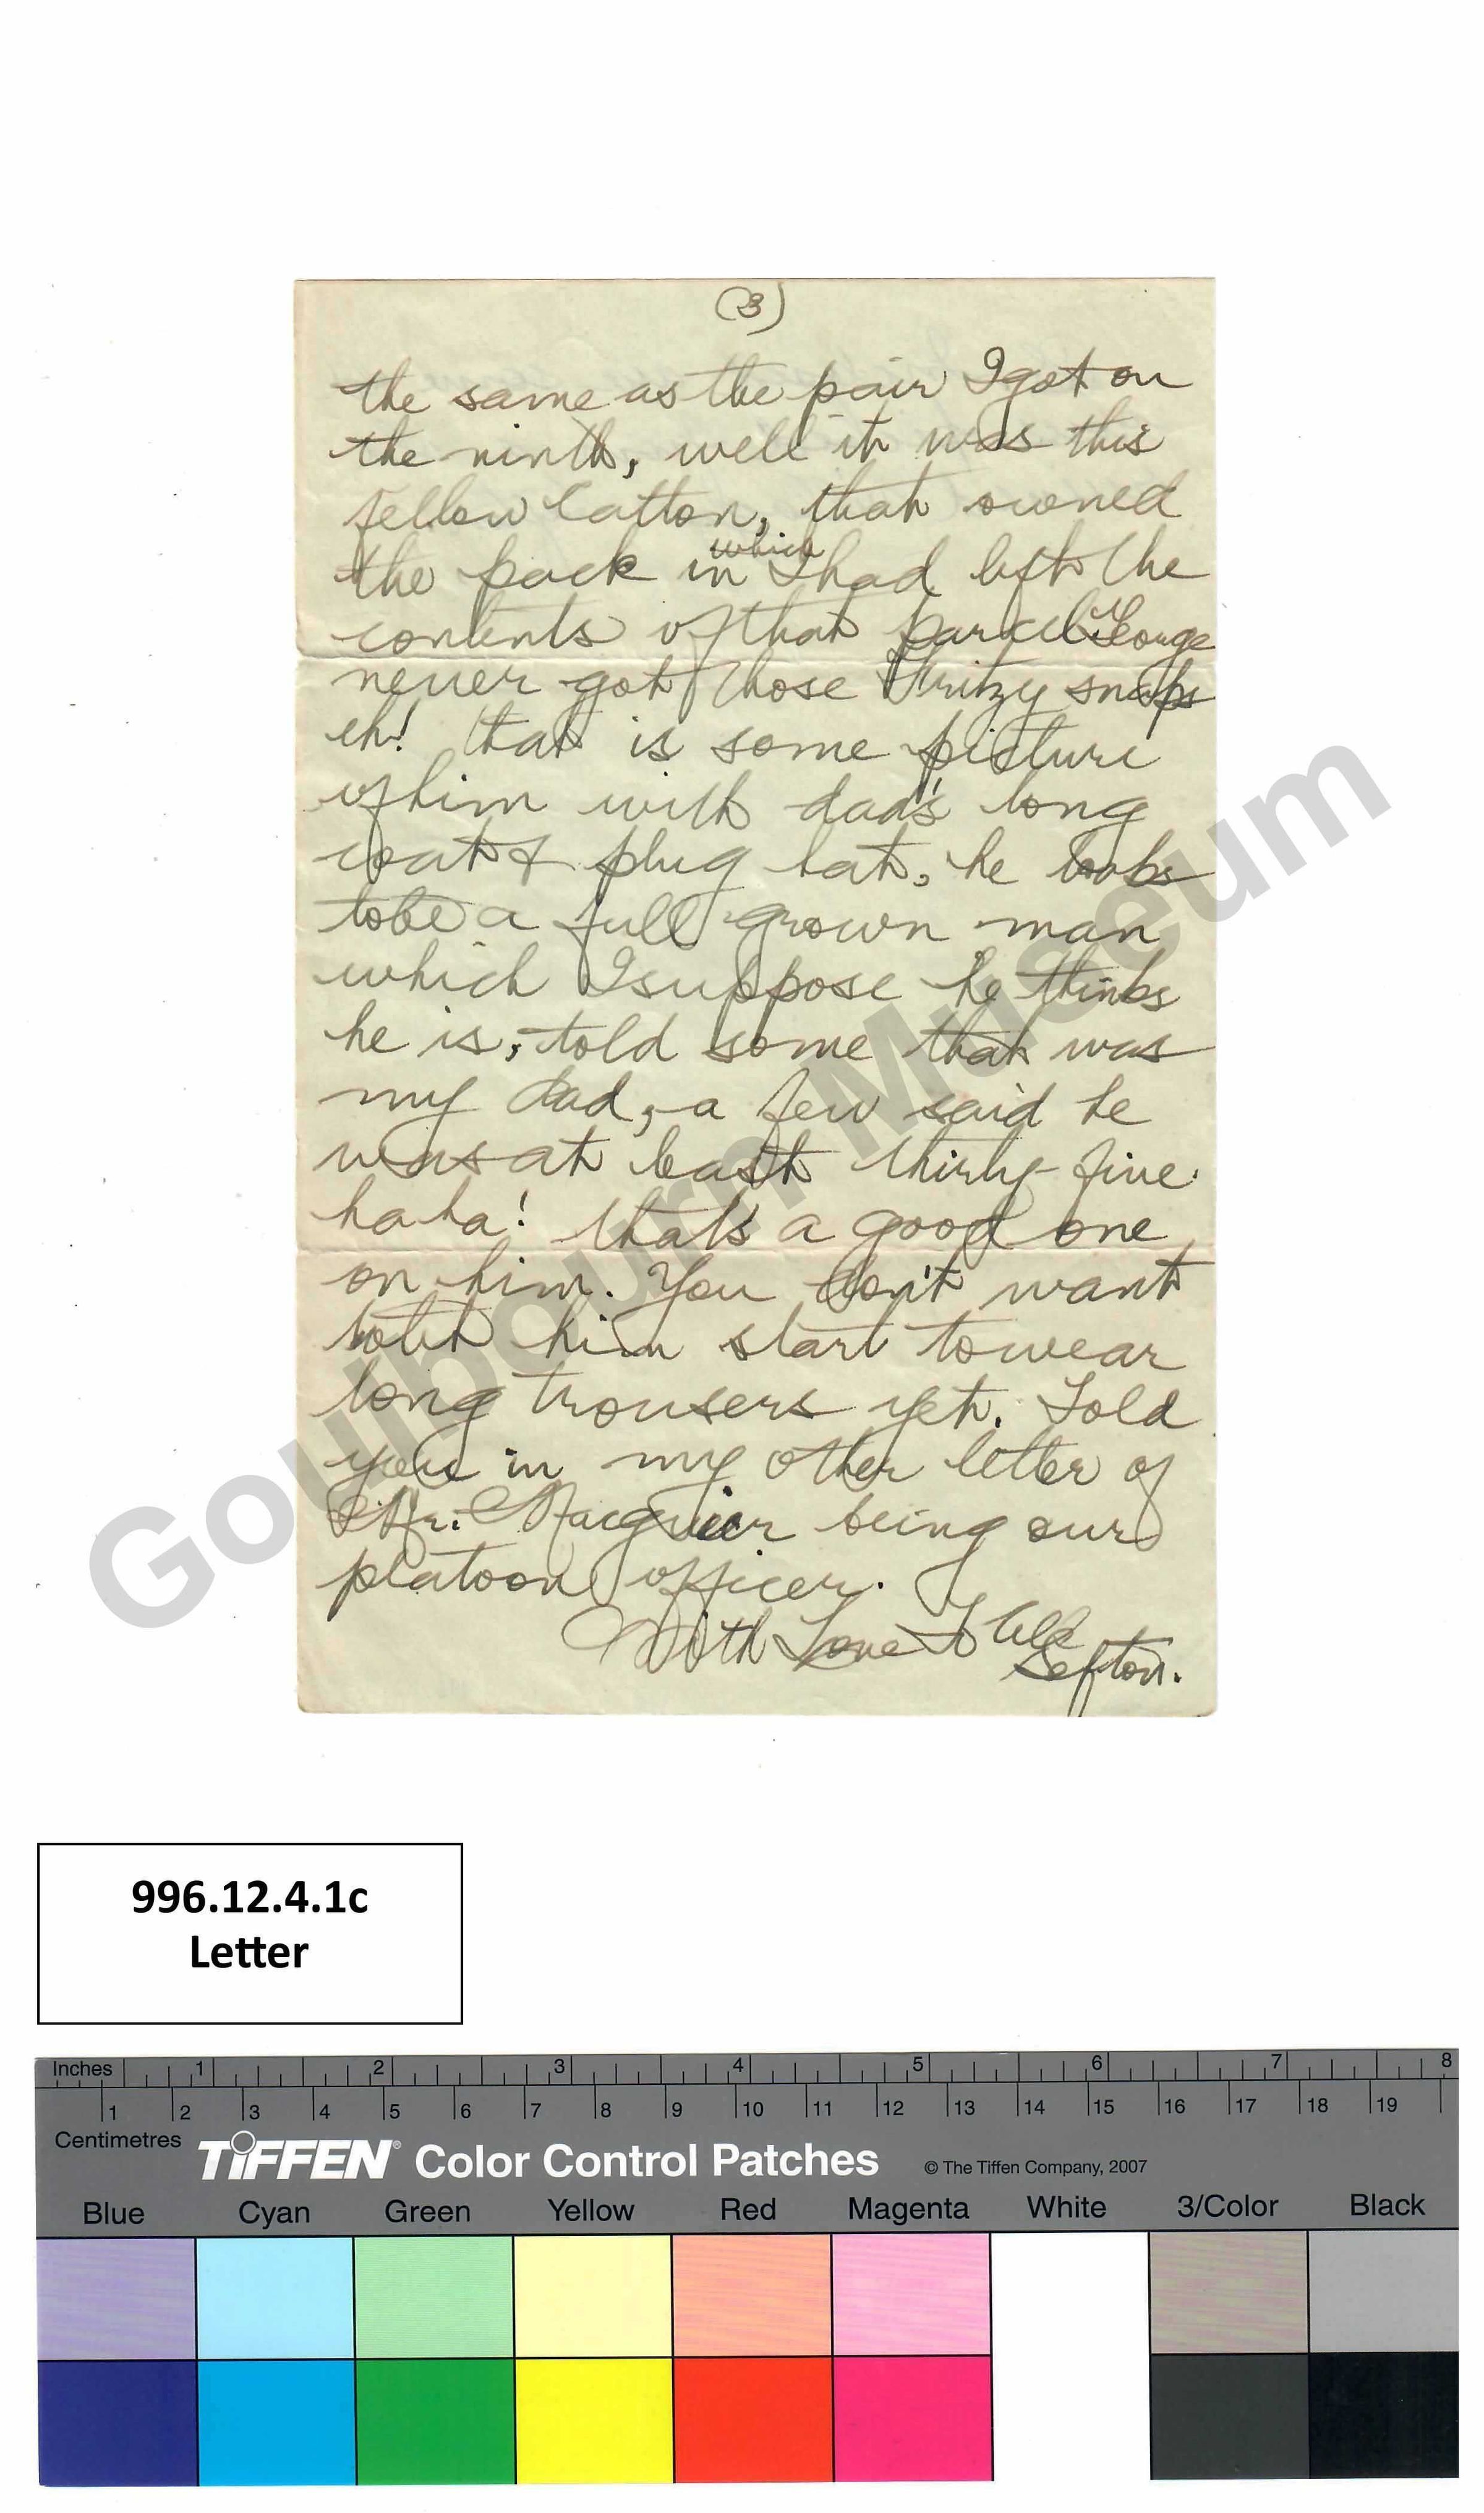 (3)
the same as the pair I got on
the ninth, well it was this
fellow Catton, that owned
which
the pack in I had left the
contents of that parcel. George
never got those Fritzy snaps
eh! that is some picture
of him with dad's long
coat & plug hat, he looks
to be a full grown man
which I suppose he thinks
he is, told some that was
my dad, a few said he
was at least thirty-five
ha ha! that's a good one
on him. You don't want
to let him start to wear
long trousers yet. Told
you in my other letter of
Mr. being our
platoon officer.
With Love to all
Sefton.
Goulbourn Museum
996.12.4.1c
Letter
Inches 1 2 3 4 5 6 7 8
1 2 3 4 5 6 7 8 9 10 11 12 13 14 15 16 17 18 19
Centimetres
TIFFEN® Color Control Patches © The Tiffen Company, 2007
Blue Cyan Green Yellow Red Magenta White 3/Color Black